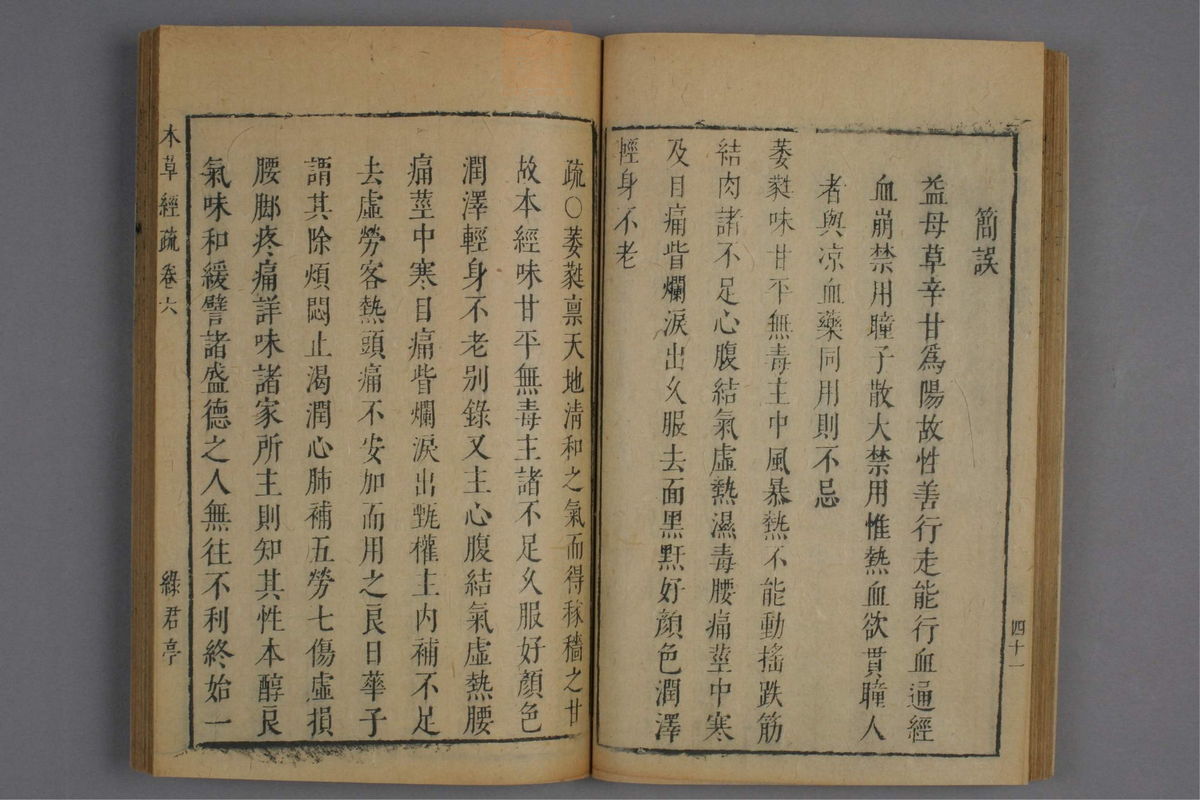 四十一
簡誤
益母草辛甘爲陽故性善行走能行血通經
血崩禁用瞳子散大禁用惟熱血欲貫瞳人
者與凉血藥同用則不忌
萎蕤味甘平無毒主中風暴熱不能動搖跌筋
結肉諸不足心腹結氣虛熱濕毒腰痛莖中寒
及目痛眥爛淚出久服去面黑䵟好顏色潤澤
輕身不老
疏○萎蕤禀天地清和之氣而得稼穡之甘
故本經味甘平無毒主諸不足久服好顏色
潤澤輕身不老别錄又主心腹結氣虛熱腰
痛莖中寒目痛眥爛淚出甄權主内補不足
去虛勞客熱頭痛不安加而用之良日華子
謂其除煩悶止渴潤心肺補五勞七傷虛損
腰脚疼痛詳味諸家所主則知其性本醇良
氣味和緩譬諸盛德之人無往不利終始一
本草經疏 卷六 綠君亭